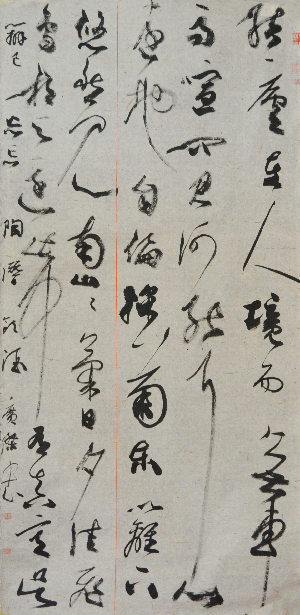 結廬在人境而無車
馬喧問君何能爾心
遠地自偏採菊東籬下
悠然見南山々氣日夕佳飛
鳥相與還此中有真意欲
辨已忘言 陶潛飲酒